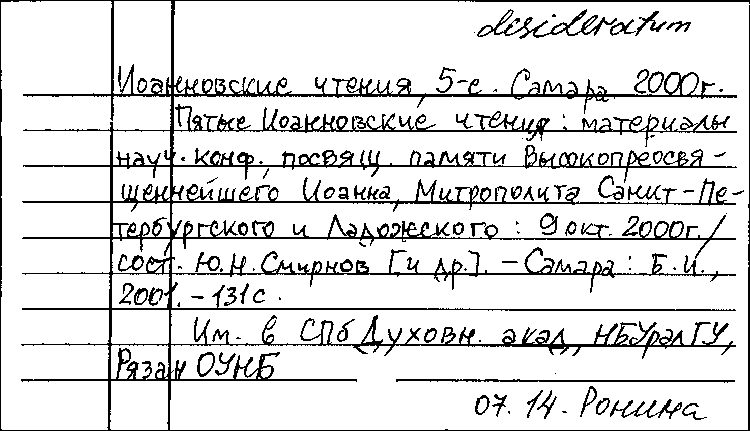 desideratum
Иоанновские чтения, 5-е. Самара 2000г.
Пятые Иоанновские чтения: материалы
науч. конф., посвящ. памяти Высокопреосвя-
щеннейшего Иоанна, Митрополита Санкт-Пе-
тербургского и Ладожского: 9 окт. 2000г./
сост. Ю.Н. Смирнов [и др.]. - Самара: Б.и.,
2001. - 131 с.
Им. в СПб Духовн. акад, НБУралГУ,
Рязан ОУНБ
07. 14. Ронина